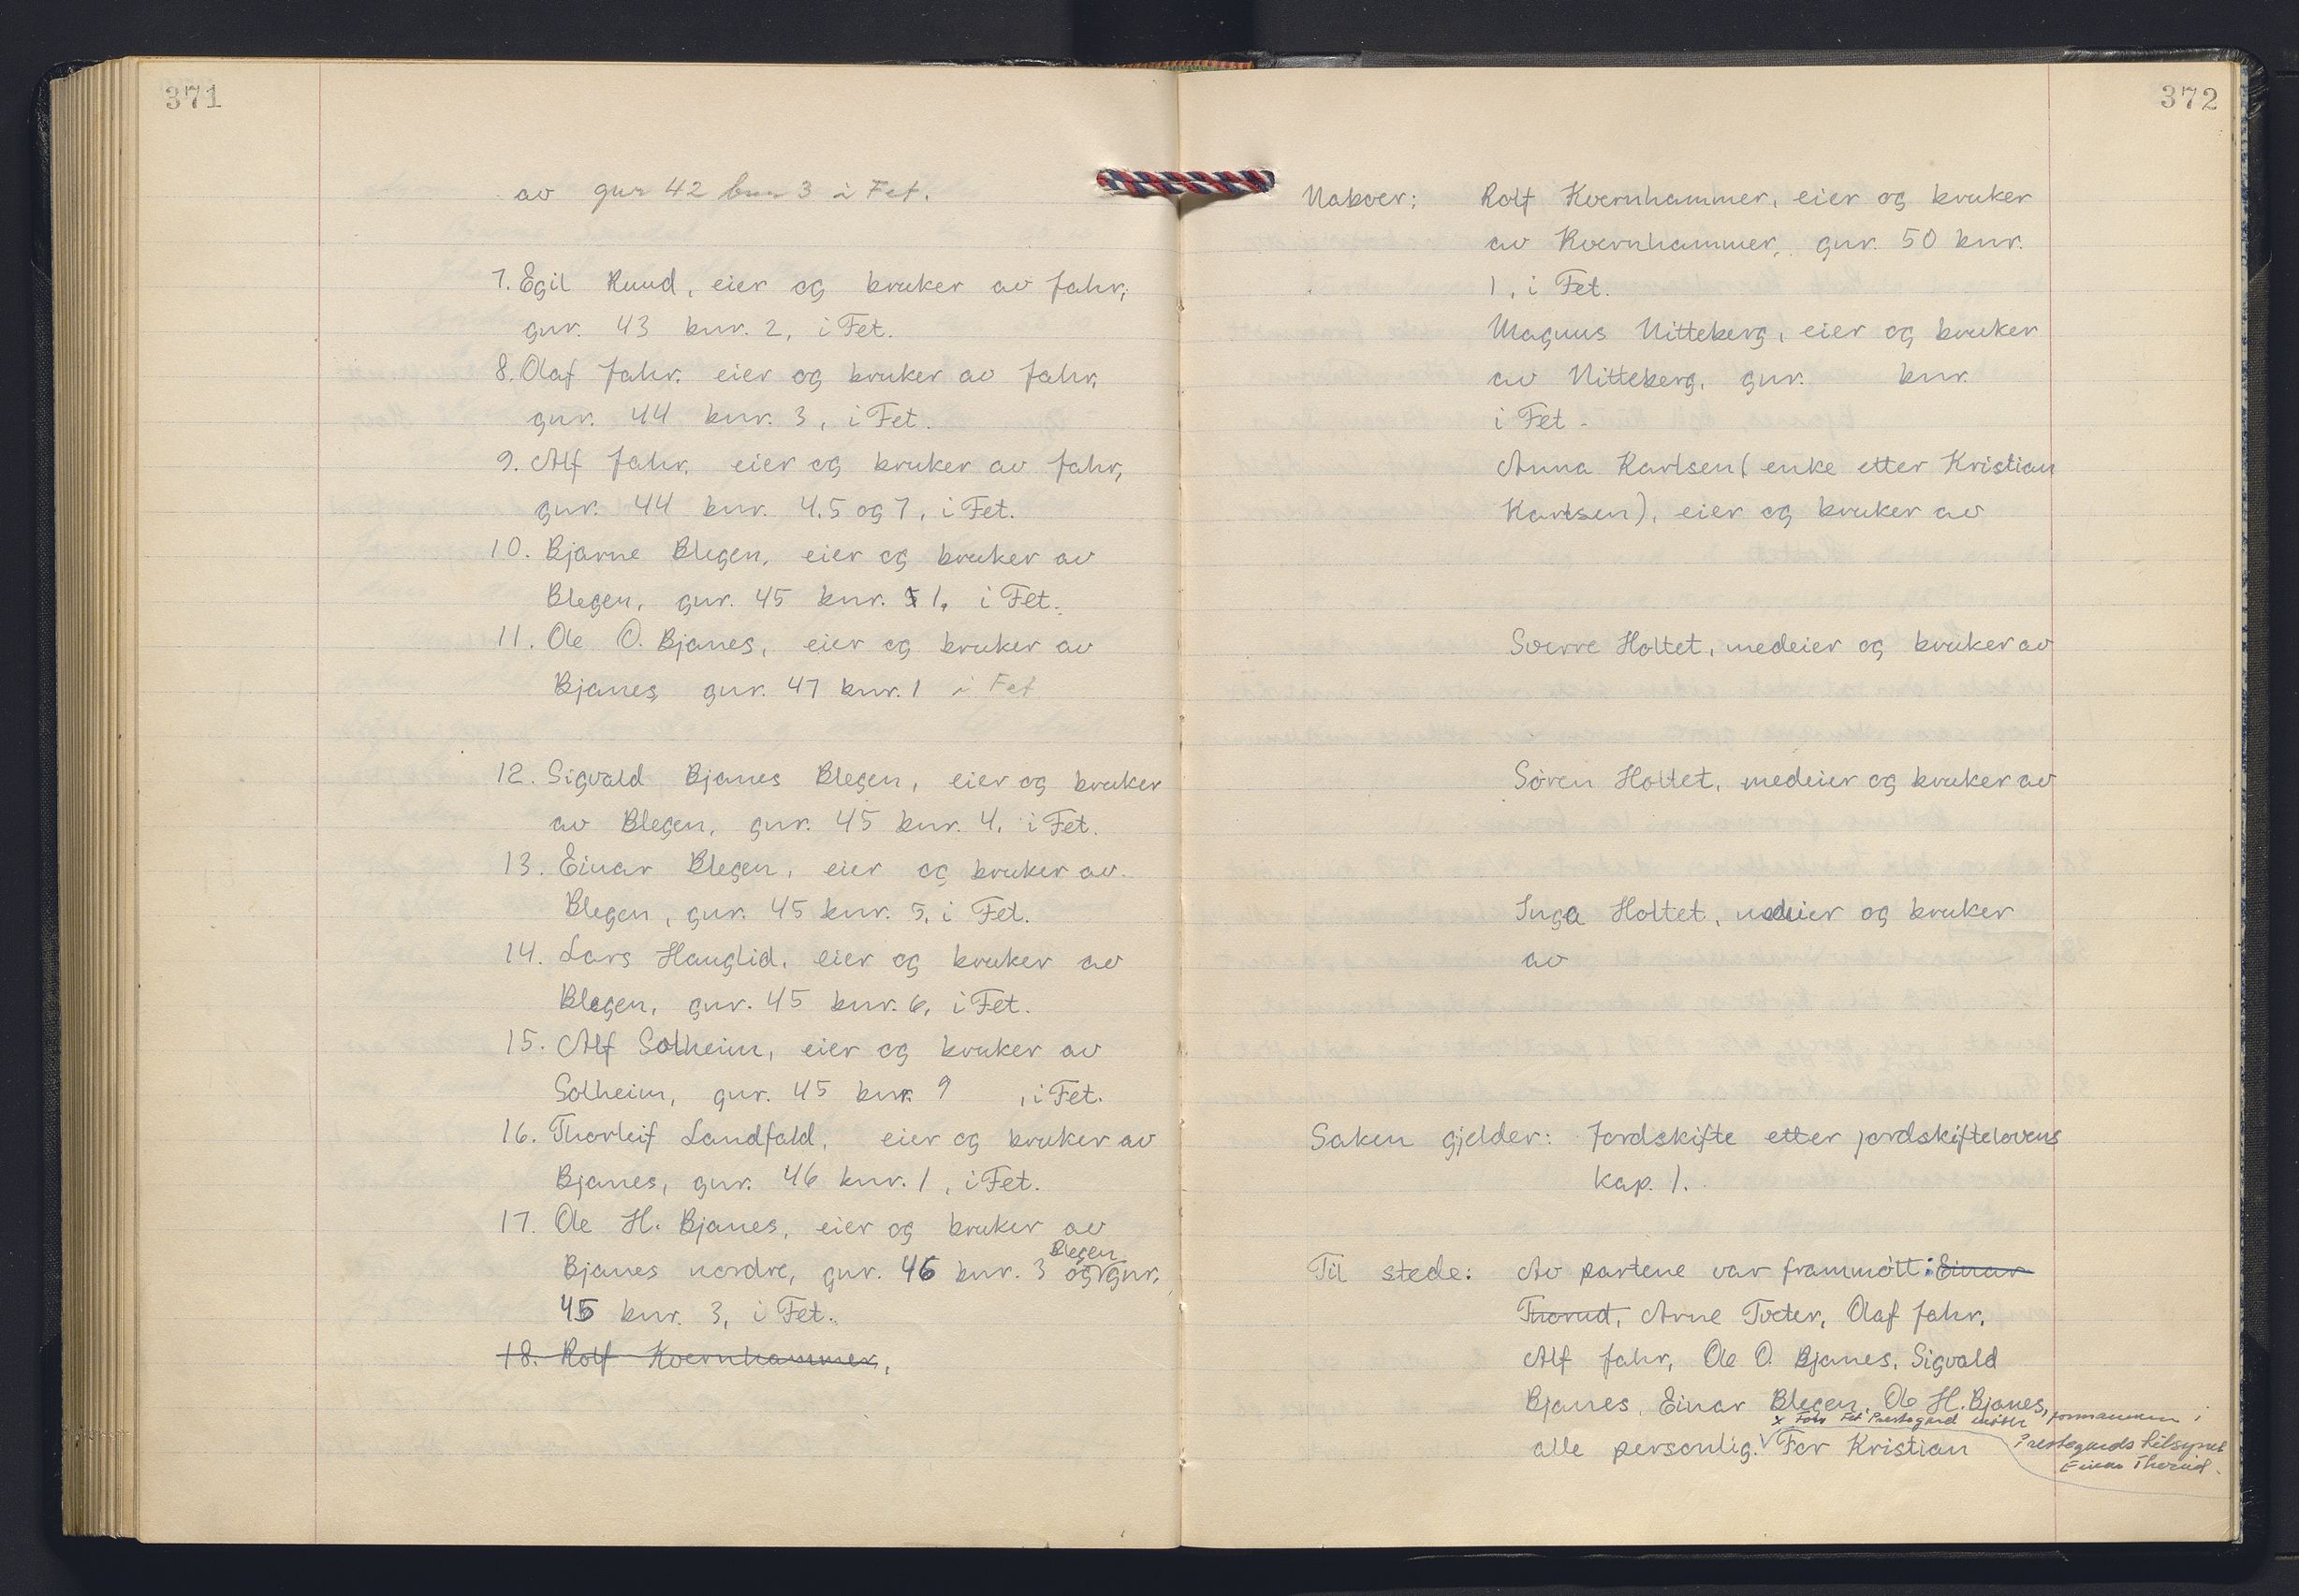 371
av gnr 42 bnr 3 i Fet.
7. Egil Ruud, eier og bruker av Jahr,
gnr. 43 bnr. 2, i Fet.
8. Olaf Jahr, eier og bruker av Jahr,
gnr. 44 bnr. 3, i Fet.
9. Alf Jahr, eier og bruker av Jahr,
gnr. 44 bnr. 4.5 og 7, i Fet.
10. Bjarne Blegen, eier og bruker av
Blegen, gnr. 45 bnr. 1, i Fet.
11. Ole O. Bjanes, eier og bruker av
Bjanes, gnr. 47 bnr. 1 i Fet
12. Sigvald Bjanes Blegen, eier og bruker
av Blegen, gnr. 45 bnr. 4, i Fet.
13. Einar Blegen, eier og bruker av
Blegen, gnr. 45 bnr. 5, i Fet.
14. Lars Hauglid, eier og bruker av
Blegen, gnr. 45 bnr. 6, i Fet.
15. Alf Solheim, eier og bruker av
Solheim, gnr. 45 bnr. 9 , i Fet.
16. Thorleif Landfald, eier og bruker av
Bjanes, gnr. 46 bnr. 1, i Fet.
17. Ole H. Bjanes, eier og bruker av
Blegen
Bjanes nordre, gnr. 46 bnr. 3 og gnr.
45 bnr. 3, i Fet.
18. Rolf Kvernhammer,
372
Naboer: Rolf Kvernhammer, eier og bruker
av Kvernhammer, gnr. 50 bnr.
1, i Fet.
Magnus Nitteberg, eier og bruker
av Nitteberg, gnr. bnr.
i Fet.
Anna Karlsen (enke etter Kristian
Karlsen), eier og bruker av
Sverre Holtet, medeier og bruker av
Sören Holtet, medeier og bruker av
Inga Holtet, medeier og bruker
av
Saken gjelder: Jordskifte etter jordskiftelovens
kap. 1.
Til stede: Av partene var frammött: Einar
Thorud, Arne Tveter, Olaf Jahr,
Alf Jahr, Ole O. Bjanes, Sigvald
Bjanes, Einar Blegen, Ole H. Bjanes,
x For Fet Prestegard møtte formannen i
Prestegards tilsynet
Einar Thorud.
alle personlig. For Kristian